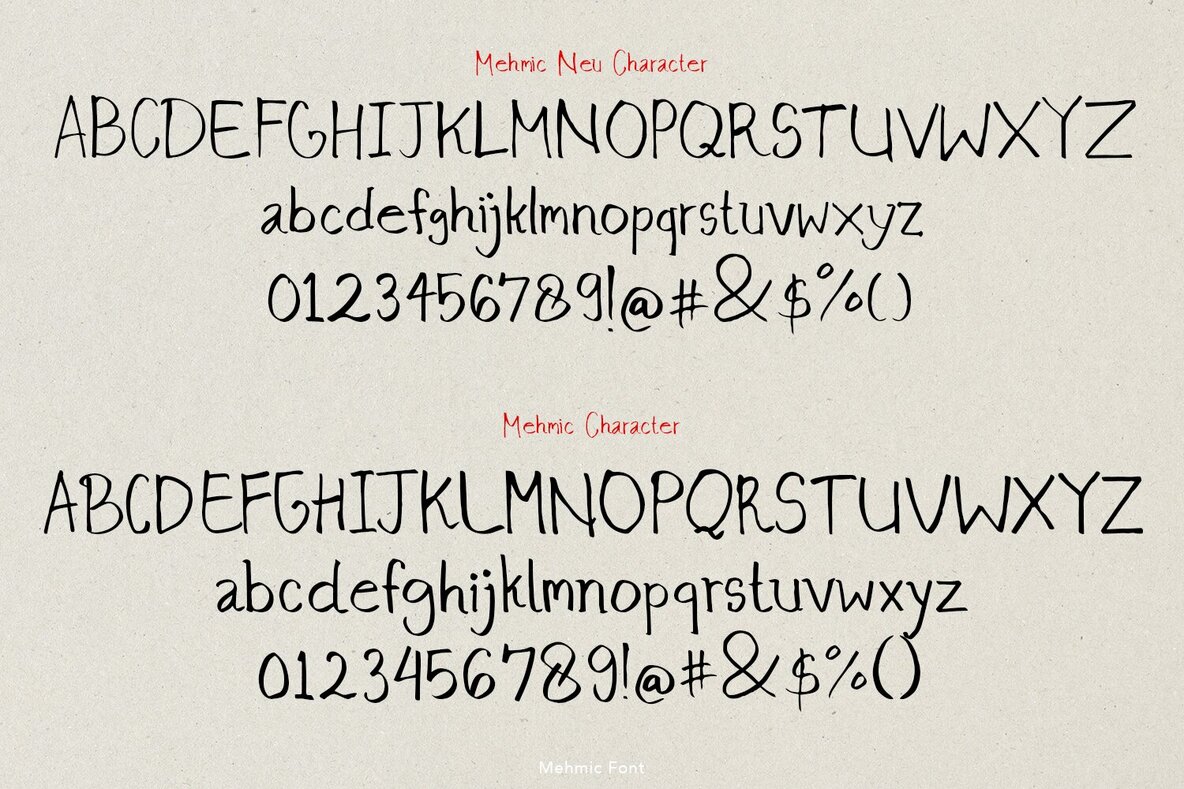 Mehmic Neu Character
ABCDEFGHIJKLMNOPQRSTUVWXYZ
abcdefghijklmnopqrstuvwxyz
0123456789!@#&$%()
Mehmic Character
ABCDEFGHIJKLMNOPQRSTUVWXYZ
abcdefghijklmnopqrstuvwxyz
0123456789!@#&$%()
Mehmic Font